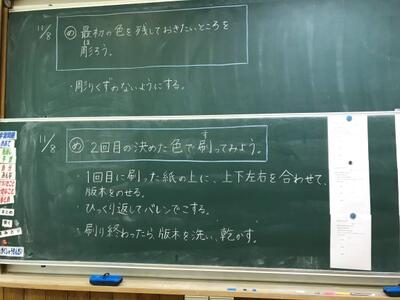 11/8
め 最初の色を残しておきたいところを
彫ろう。
ほ
・彫りくずのないようにする。
11/8
め 2回目の決めた色で刷ってみよう。
す
・1回目に刷った紙の上に、上下左右を合わせて、
版木をのせる。
・ひっくり返してバレンでこする。
・刷り終わったら、版木を洗い、乾かす。
まとめ